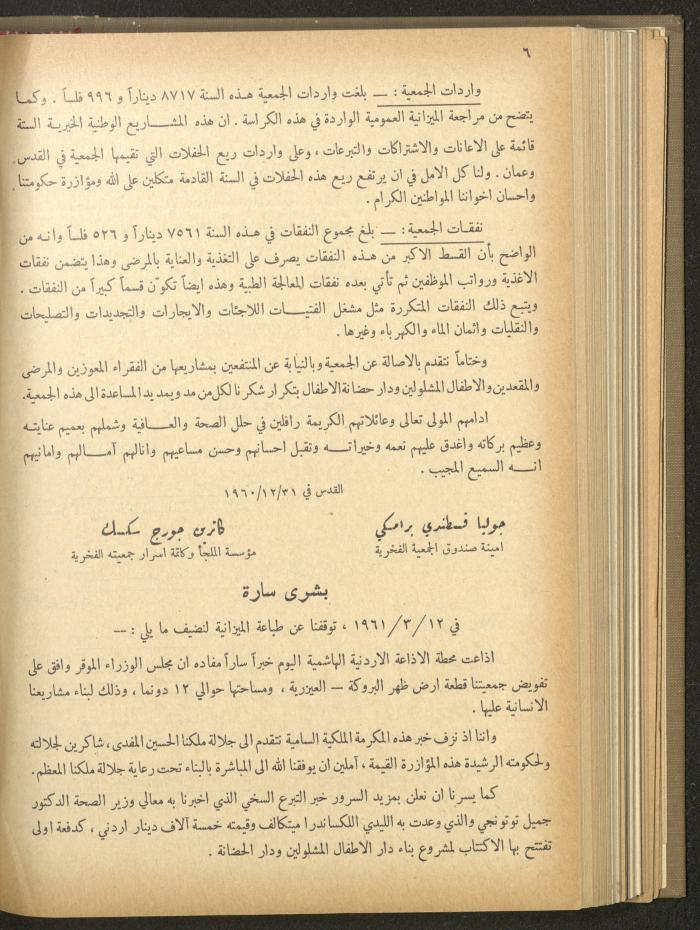 ٦
واردات الجمعية : — بلغت واردات الجمعية هـذه السنة ٨٧١٧ ديناراً و ٩٩٦ فلساً . وكمـا
يتضح من مراجعة الميزانية العمومية الواردة في هذه الكراسة . ان هذه المشـــاريع الوطنية الخيرية الستة
قائمة على الاعانات والاشتراكات والتبرعات ، وعلى واردات ريع الحفلات التي تقيمها الجمعية في القدس
وعمان . ولنا كل الامل في ان يرتفع ريع هذه الحفلات في السنة القادمة متكلين على الله ومؤازرة حكومتنا
واحسان اخواننا المواطنين الكرام .
نفقـات الجمعية : — بلغ مجموع النفقات في هـذه السنة ٧٥٦١ ديناراً و ٥٢٦ فلساً وانـه من
الواضح بأن القسط الاكبر من هـذه النفقات يصرف على التغذية والعناية بالمرضى وهذا يتضمن نفقات
الاغذية ورواتب الموظفين ثم تأتي بعده نفقات المعالجة الطبية وهذه ايضاً تكوّن قسماً كبيراً من النفقات .
ويتبع ذلك النفقات المتكررة مثل مشغل الفتيـــات اللاجئات والايجارات والتجديدات والتصليحات
والنقليات واثمان الماء والكهرباء وغيرها .
وختاماً نتقدم بالاصالة عن الجمعية وبالنيابة عن المنتفعين بمشاريعها من الفقراء المعوزين والمرضى
والمقعدين والاطفال المشلولين ودار حضانة الاطفال بتكرار شكرنا لكل من مد ويمد يد المساعدة الى هذه الجمعية.
ادامهم المولى تعالى وعائلاتهم الكريمة رافلين في حلل الصحة والعــافية وشملهم بعميم عنايتـه
وعظيم بركاته واغدق عليهم نعمه وخيراتـــه وتقبل احسانهم وحسن مساعيهم وانالهم آمـــالهم وامانيهم
انـــه السميع المجيب .
القدس في ٣١/١٢/١٩٦٠
جوليا قسطندي برامكي
امينة صندوق الجمعية الفخرية
كاترين جورج سكسك
مؤسسة الملجأ وكاتمة اسرار جمعيته الفخرية
بشرى سارة
في ١٢/٣/١٩٦١ ، توقفنا عن طباعة الميزانية لنضيف ما يلي : —
اذاعت محطة الاذاعة الاردنية الهاشمية اليوم خبراً ساراً مفاده ان مجلس الوزراء الموقر وافق على
تفويض جمعيتنا قطعة ارض ظهر البروكة — العيزرية ، ومساحتها حوالي ١٢ دونما ، وذلك لبناء مشاريعنا
الانسانية عليها .
واننا اذ نزف خبر هذه المكرمة الملكية السامية نتقدم الى جلالة ملكنا الحسين المفدى، شاكرين لجلالته
ولحكومته الرشيدة هذه المؤازرة القيمة ، آملين ان يوفقنا الله الى المباشرة بالبناء تحت رعاية جلالة ملكنا المعظم.
كما يسرنا ان نعلن بمزيد السرور خبر التبرع السخي الذي اخبرنا به معالي وزير الصحة الدكتور
جميل توتونجي والذي وعدت به الليدي اللكساندرا ميتكالف وقيمته خمسة آلاف دينار اردني ، كدفعة اولى
تفتتح بها الاكتتاب لمشروع بناء دار الاطفال المشلولين ودار الحضانة .